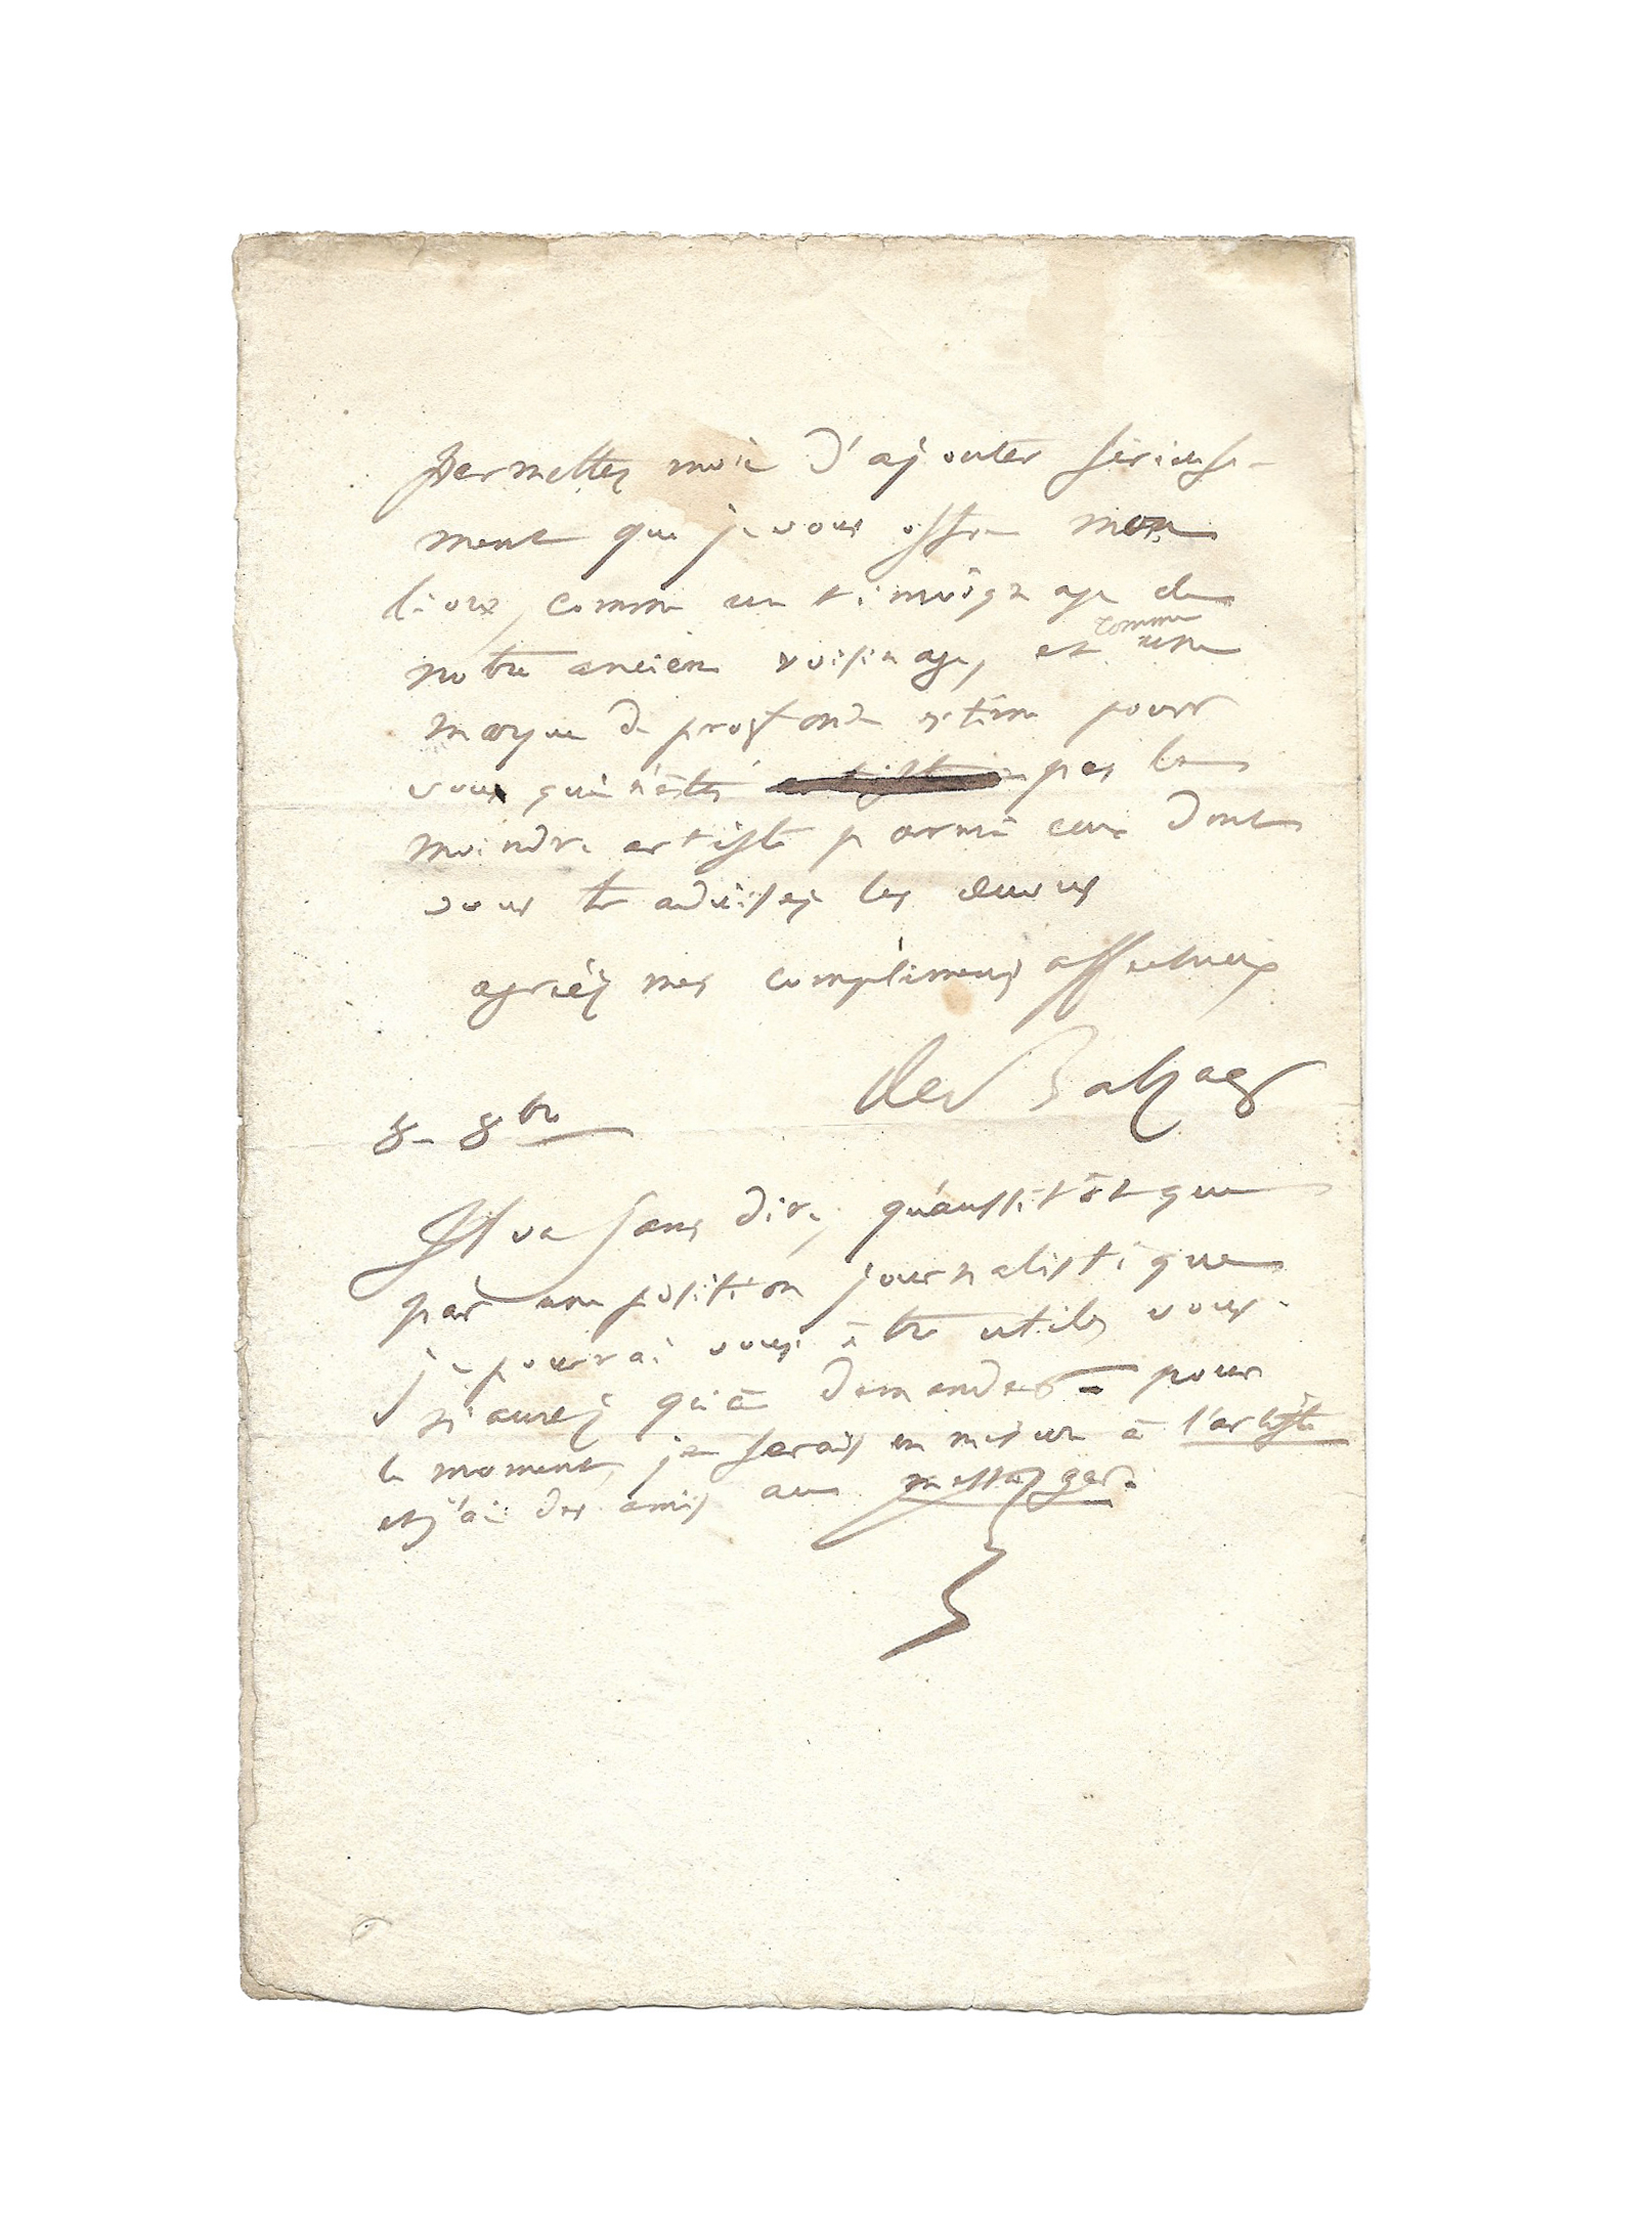 permettez moi d'ajouter sérieuse-
ment que je vous offre mon
livre, comme un témoignage de
notre ancien voisinage, et comme une
marque de profonde estime pour
vous qui n'êtes pas le
moindre artiste parmi ceux dont
vous traduisez les œuvres
agréez mes complimens affectueux
de Balzac
8 – 8bre
Il va sans dire, qu'aussitôt que
par une position journalistique
je pourrai vous être utile, vous
n'aurez qu'à demander – pour
le moment, je serais en mesure à l'artiste
et j'ai des amis au messager.